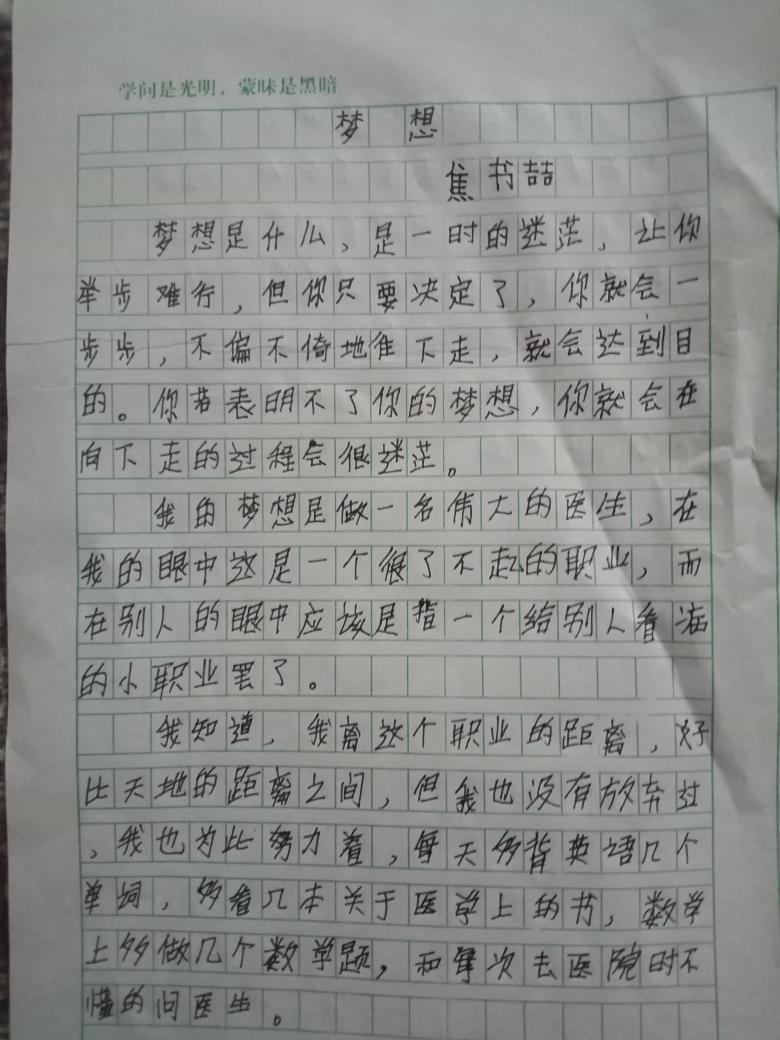 学问是光明，蒙昧是黑暗
梦想
焦书喆
梦想是什么，是一时的迷茫，让你
举步难行，但你只要决定了，你就会一
步步，不偏不倚地往下走，就会达到目
的。你若表明不了你的梦想，你就会在
向下走的过程会很迷茫。
我的梦想是做一名伟大的医生，在
我的眼中这是一个很了不起的职业，而
在别人的眼中应该是指一个给别人看病
的小职业罢了。
我知道，我离这个职业的距离，好
比天地的距离之间，但我也没有放弃过
，我也为此努力着，每天多背英语几个
单词，多看几本关于医学上的书，数学
上多做几个数学题，和每次去医院时不
懂的问医生。